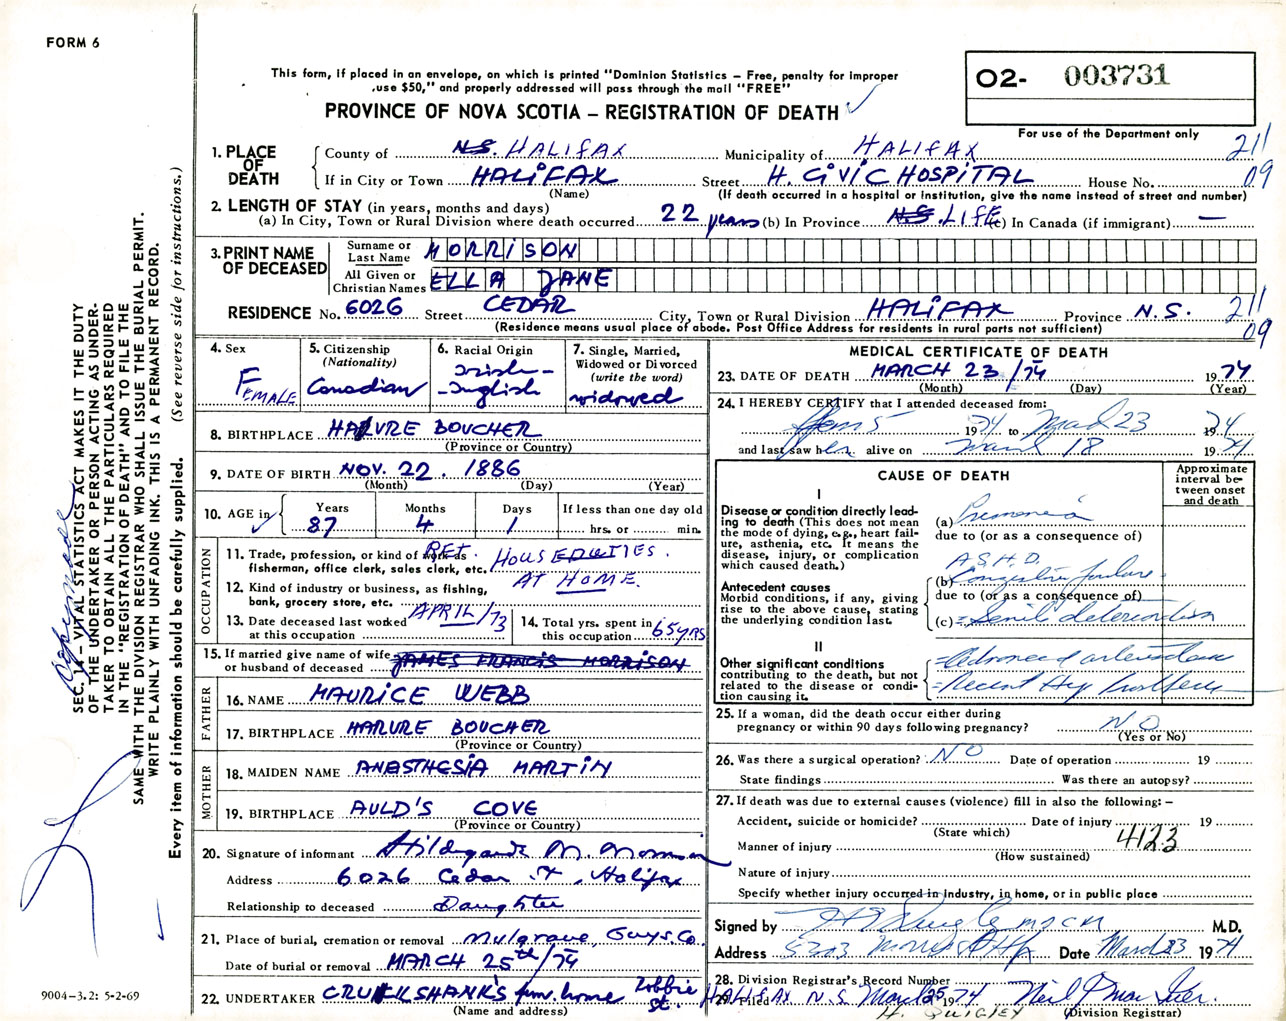 FORM 6
This form, if placed in an envelope, on which is printed "Dominion Statistics – Free, penalty for improper
use $50," and properly addressed will pass through the mail "FREE"
PROVINCE OF NOVA SCOTIA – REGISTRATION OF DEATH
O2- 003731
For use of the Department only
1. PLACE OF DEATH
County of N.S. HALIFAX Municipality of HALIFAX 211
If in City or Town HALIFAX Street H. CIVIC HOSPITAL House No. 09
(Name) (If death occurred in a hospital or institution, give the name instead of street and number)
2. LENGTH OF STAY (in years, months and days)
(a) In City, Town or Rural Division where death occurred 22 years (b) In Province N.S. LIFE (c) In Canada (if immigrant) —
3. PRINT NAME OF DECEASED
Surname or Last Name MORRISON
All Given or Christian Names ELLA JANE
RESIDENCE No. 6026 Street CEDAR City, Town or Rural Division HALIFAX Province N.S. 211
(Residence means usual place of abode. Post Office Address for residents in rural parts not sufficient) 09
4. Sex
FEMALE
5. Citizenship
(Nationality)
Canadian
6. Racial Origin
Irish-
-English
7. Single, Married,
Widowed or Divorced
(write the word)
widowed
8. BIRTHPLACE HARVRE BOUCHER
(Province or Country)
9. DATE OF BIRTH NOV. 22. 1886
(Month) (Day) (Year)
10. AGE in
Years Months Days If less than one day old
87 4 1 hrs. or min.
OCCUPATION
11. Trade, profession, or kind of work as RET. HOUSE DUTIES.
fisherman, office clerk, sales clerk, etc.
12. Kind of industry or business, as fishing, AT HOME.
bank, grocery store, etc.
13. Date deceased last worked APRIL/73
at this occupation
14. Total yrs. spent in
this occupation 65 yrs
15. If married give name of wife
or husband of deceased JAMES FRANCIS MORRISON
FATHER
16. NAME MAURICE WEBB
17. BIRTHPLACE HARVRE BOUCHER
(Province or Country)
MOTHER
18. MAIDEN NAME ANASTHESIA MARTIN
19. BIRTHPLACE AULD'S COVE
(Province or Country)
20. Signature of informant Hildegarde M. Morrison
Address 6026 Cedar St, Halifax
Relationship to deceased Daughter
21. Place of burial, cremation or removal Mulgrave, Guys. Co.
Date of burial or removal MARCH 25th/74
22. UNDERTAKER CRUIKSHANK'S fun. home Robbie St. HALIFAX N.S
(Name and address)
MEDICAL CERTIFICATE OF DEATH
23. DATE OF DEATH MARCH 23/74 1974
(Month) (Day) (Year)
24. I HEREBY CERTIFY that I attended deceased from:
5 1974 to March 23 1974
and last saw her alive on March 18 1974
CAUSE OF DEATH
Approximate interval between onset and death
I
Disease or condition directly leading to death (This does not mean the mode of dying, e.g., heart failure, asthenia, etc. It means the disease, injury, or complication which caused death.)
(a) Pneumonia
due to (or as a consequence of)
Antecedent causes
Morbid conditions, if any, giving rise to the above cause, stating the underlying condition last.
A.S.H.D.
(b) Congestive failure
due to (or as a consequence of)
(c) Senile deterioration
II
Other significant conditions
contributing to the death, but not related to the disease or condition causing it.
Advanced
Recent Hip
25. If a woman, did the death occur either during
pregnancy or within 90 days following pregnancy? NO
(Yes or No)
26. Was there a surgical operation? NO Date of operation 19
State findings Was there an autopsy?
27. If death was due to external causes (violence) fill in also the following: –
Accident, suicide or homicide? Date of injury 19
(State which) 4123
Manner of injury
(How sustained)
Nature of injury
Specify whether injury occurred in industry, in home, or in public place
Signed by M.D.
Address 5303 Morris St Hfx Date March 23 1974
28. Division Registrar's Record Number
29. Filed March 25 1974 Neil
H. QUIGLEY (Division Registrar)
SEC. 14 – VITAL STATISTICS ACT MAKES IT THE DUTY
OF THE UNDERTAKER OR PERSON ACTING AS UNDER-
TAKER TO OBTAIN ALL THE PARTICULARS REQUIRED
IN THE "REGISTRATION OF DEATH" AND TO FILE THE
SAME WITH THE DIVISION REGISTRAR WHO SHALL ISSUE THE BURIAL PERMIT.
WRITE PLAINLY WITH UNFADING INK. THIS IS A PERMANENT RECORD.
Every item of information should be carefully supplied. (See reverse side for instructions.)
9004-3.2: 5-2-69